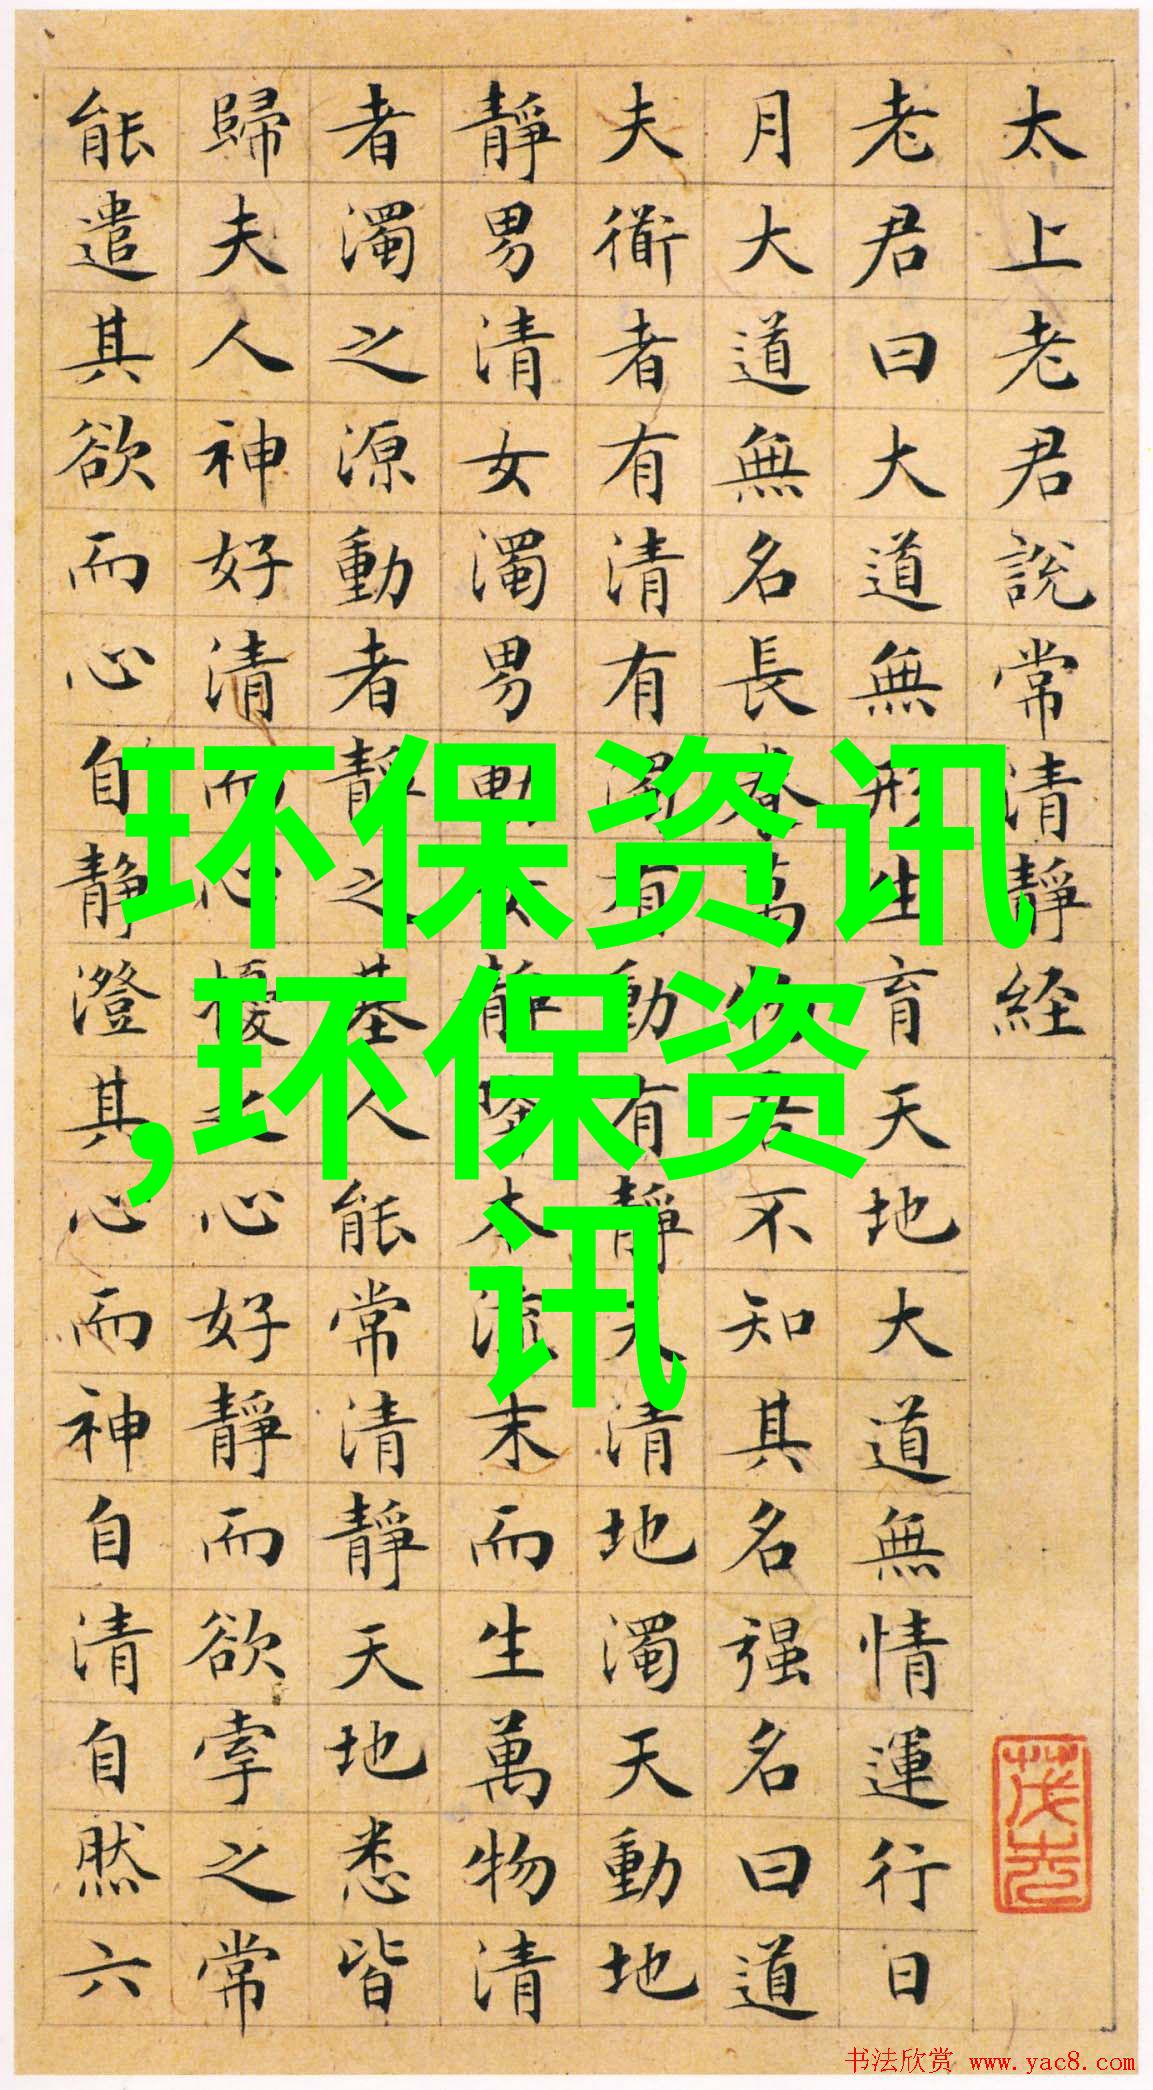 太上老君說常清靜経
老君曰大道無形生育天地大道無情運行日
月大道無名長養萬物吾不知其名强名曰道
夫衜者有清有濁有動有靜天清地濁天動地
靜男清女濁男動女靜降本流末而生萬物清
者濁之源動者靜之基人能常清靜天地悉皆
歸夫人神好清而心擾之心好靜而欲牽之常
能遣其欲而心自靜澄其心而神自清自然六
环保资讯
,环保资
讯
书法欣赏 www.yac8.com